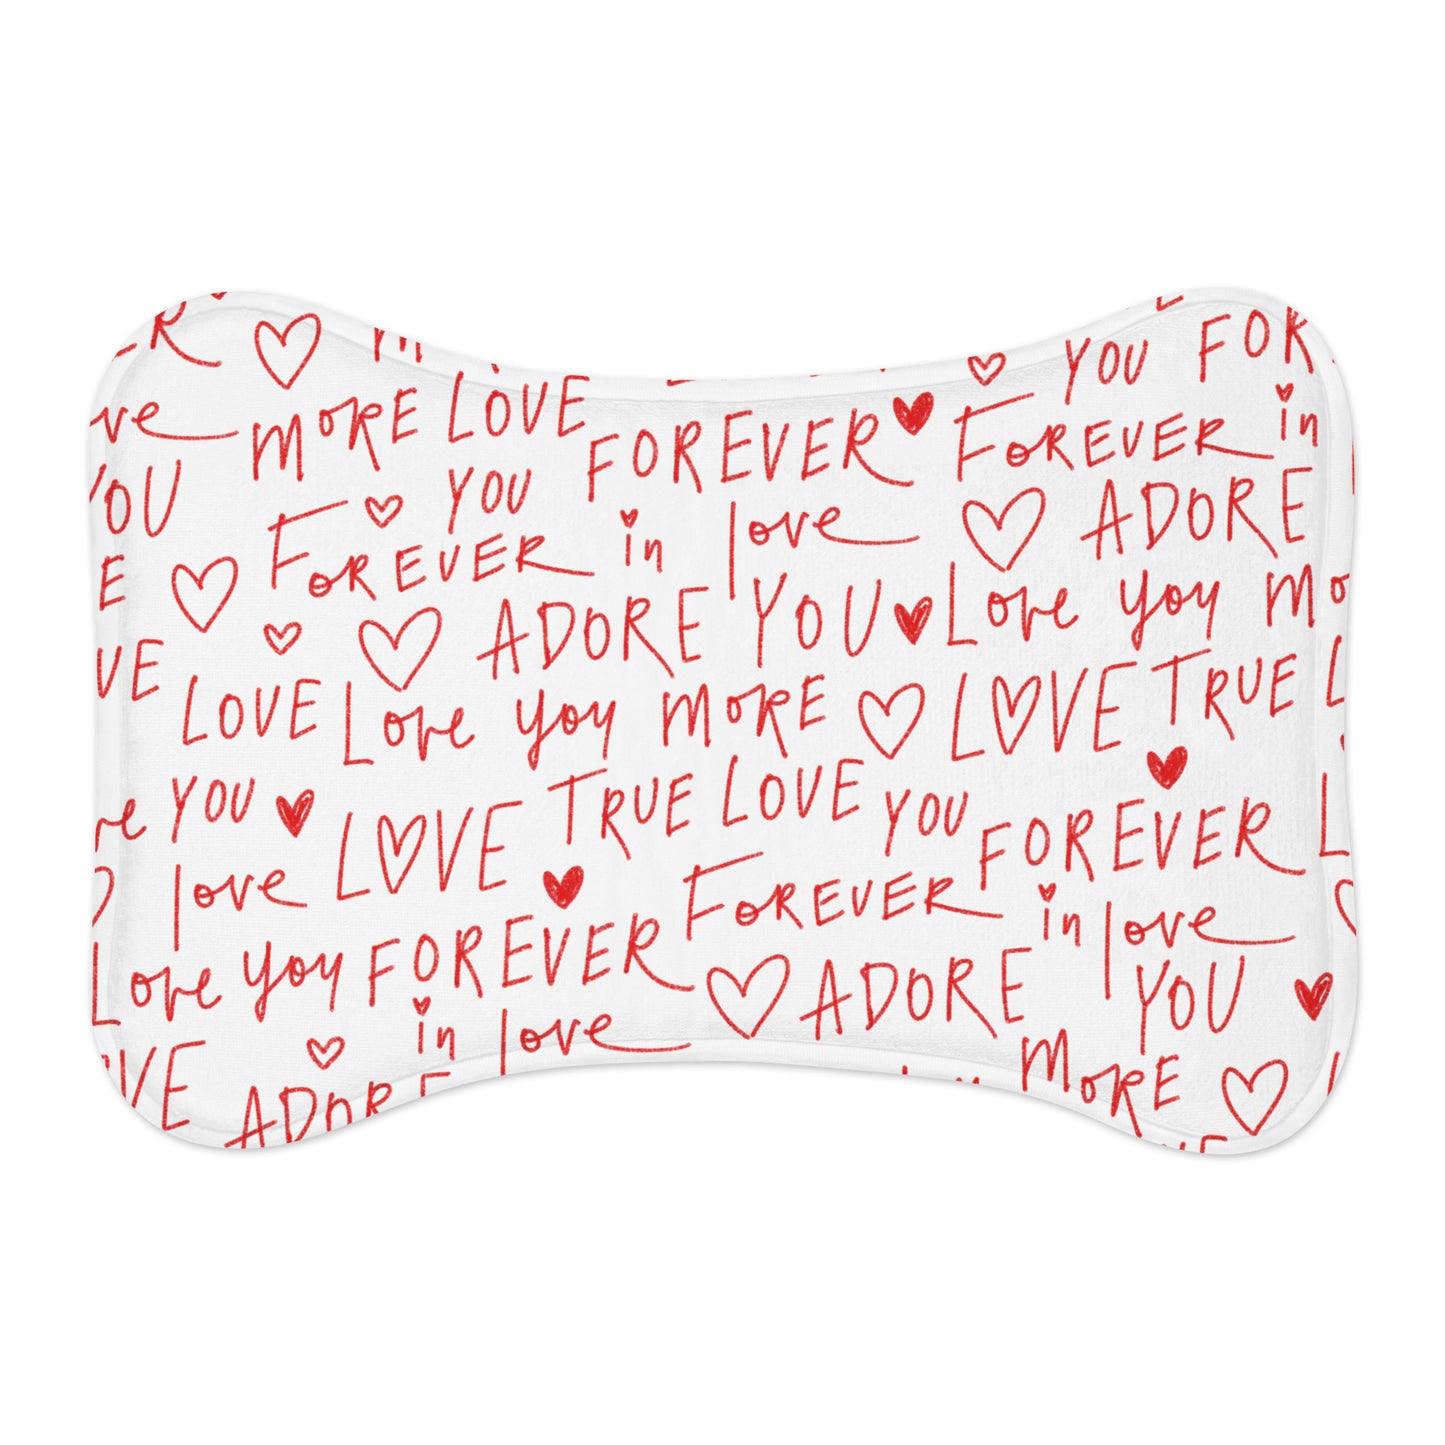 YOU FOR
ve MORE LOVE FOREVER FOREVER in
YOU FOREVER YOU in love ADORE
E ADORE YOU Love you mo
VE LOVE Love you MORE LOVE TRUE L
re YOU LOVE TRUE LOVE YOU FOREVER L
love FOREVER FOREVER in love
Love you in love ADORE YOU
VE ADORE MORE